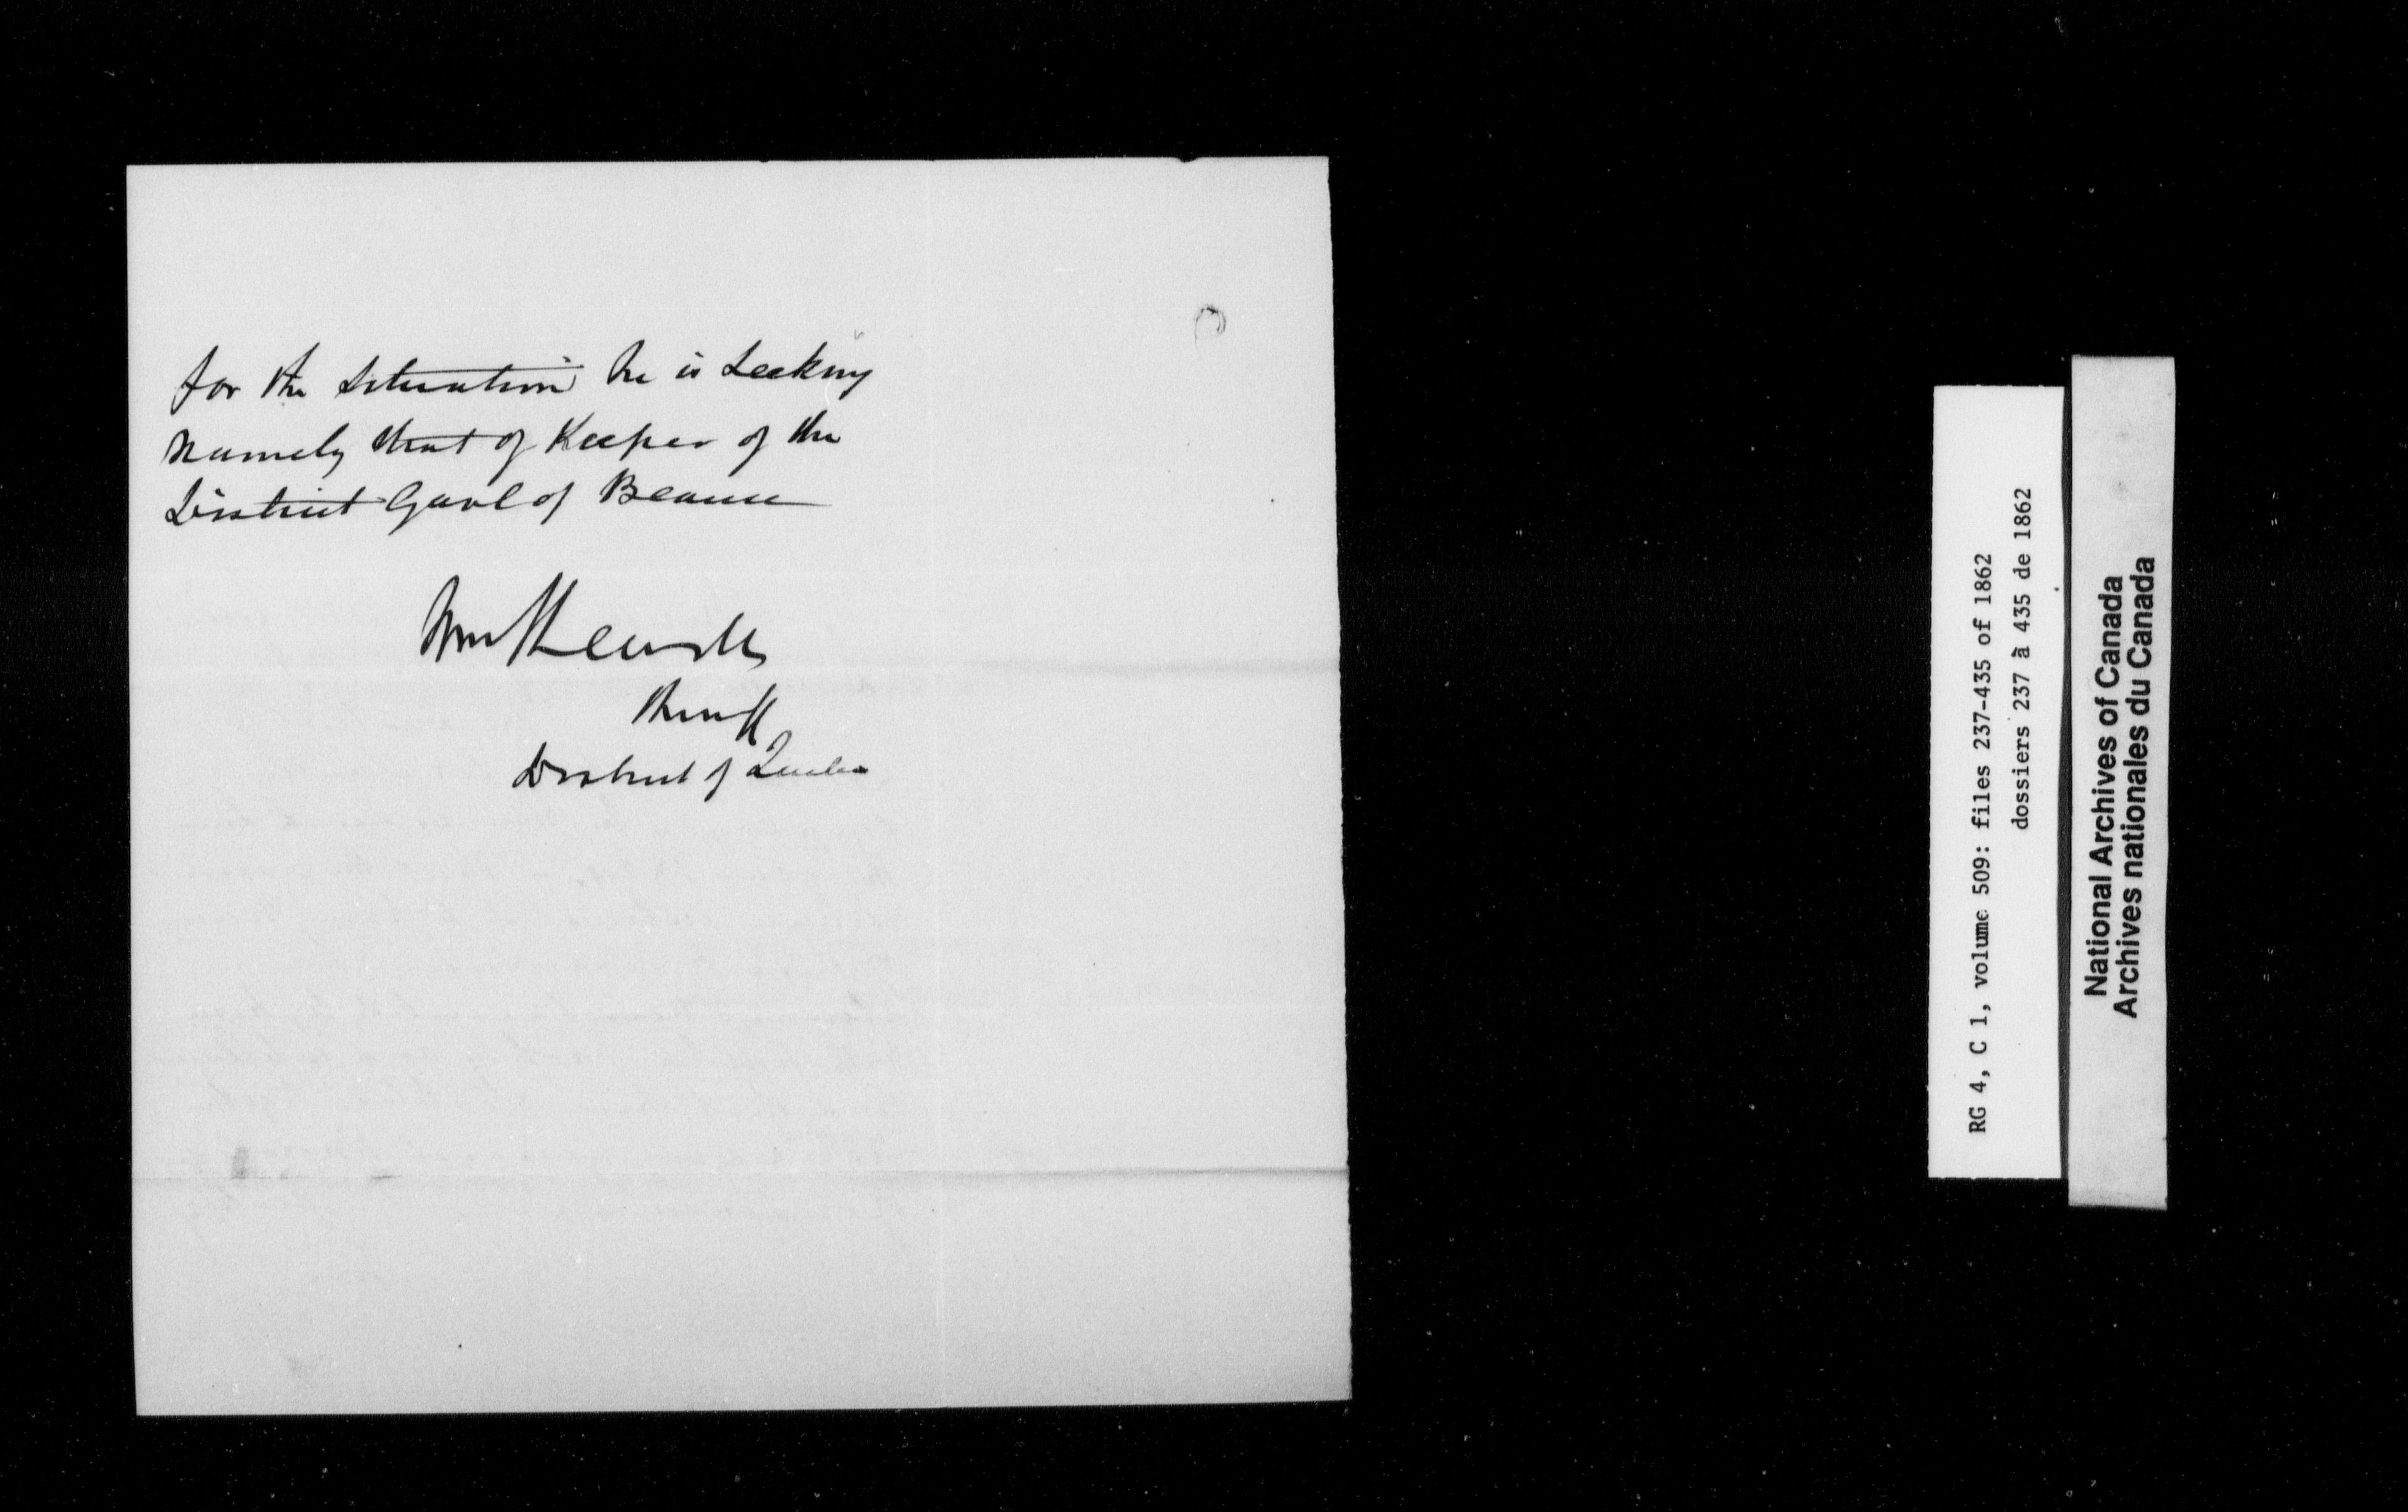 for the situation he is seeking
namely that of Keeper of the
District Gaol of Beauce
Wm
Sheriff
District of Quebec
RG 4, C 1, volume 509: files 237-435 of 1862
dossiers 237 à 435 de 1862
National Archives of Canada
Archives nationales du Canada